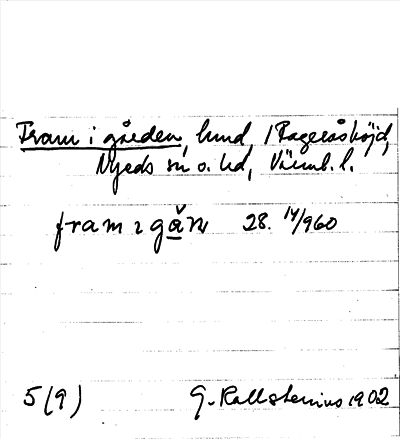 Fram i gården, hmd, i Rageråshöjd,
Nyeds sn o. hd, Värml. l.
fram ı gǎ̱ɴ 28. 14/960
5(9) G. Kallstenius 1902